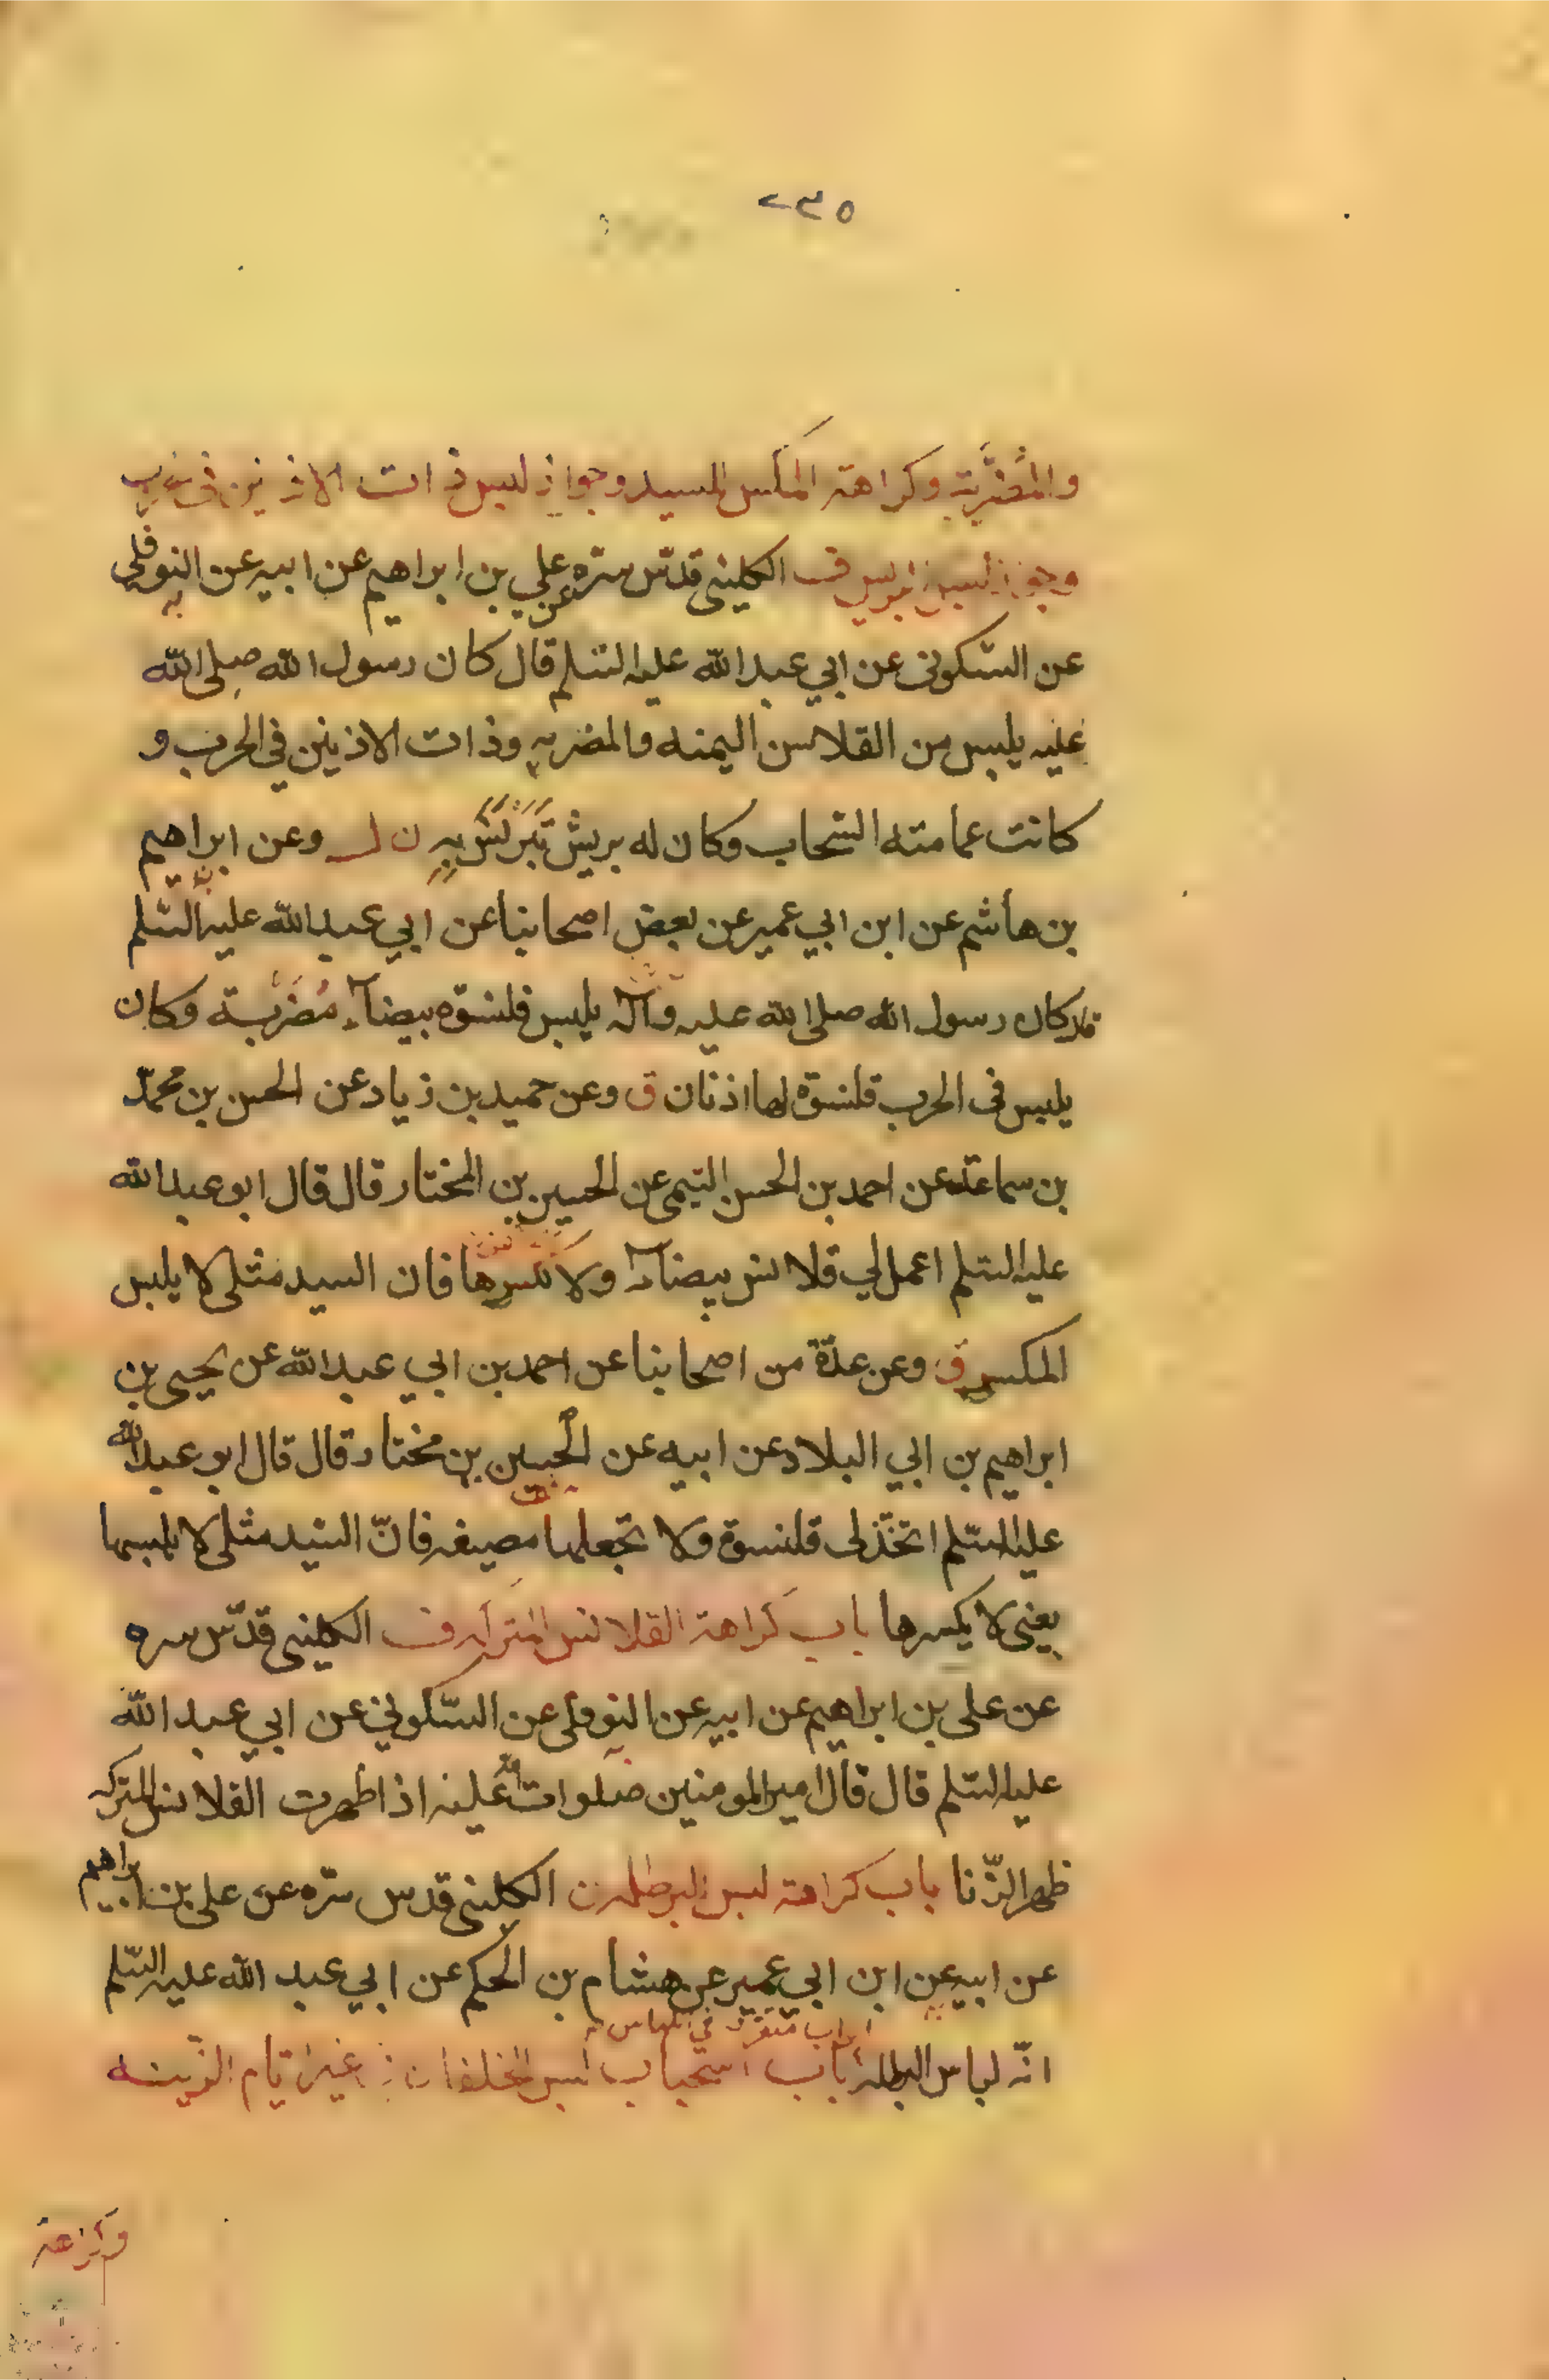 ٢٣٥
والمضرّبة وكراهة المكسر للسيد وجواز لبس ذات الاذنين في الحرب
وجواز لبس البرنس ق الكليني قدّس سرّه عن علي بن ابراهيم عن ابيه عن النوفلي
عن السّكوني عن ابي عبدالله عليه السّلم قال كان رسول الله صلى الله
عليه يلبس من القلانس اليمنه والمضربه وذات الاذنين في الحرب و
كانت عمامته السّحاب وكان له برنس تبرنس به ن ل وعن ابراهيم
بن هاشم عن ابن ابي عمير عن بعض اصحابنا عن ابي عبدالله عليه السّلم
قال كان رسول الله صلى الله عليه وآله يلبس قلنسوة بيضآء مُضَرّبة وكان
يلبس في الحرب قلنسوة لها اذنان ق وعن حميد بن زياد عن الحسن بن محمّد
بن سماعة عن احمد بن الحسن التيمى عن الحسين بن المختار قال قال ابو عبدالله
عليه السّلم اعمل لي قلانس بيضآء ولا تكسرها فان السيد مثلى لا يلبس
المكسر ق وعن عدّة من اصحابنا عن احمد بن ابي عبدالله عن يحيى بن
ابراهيم بن ابي البلاد عن ابيه عن الحسين بن مختار قال قال ابو عبدالله
عليه السّلم اتخّذ لى قلنسوة ولا تجعلها مصبغه فانّ السّيد مثلى لا يلبسها
يعنى لا يكسرها باب كراهة القلانس المتركه ق الكليني قدّس سره
عن على بن ابراهيم عن ابيه عن النوفلى عن السّكوني عن ابي عبدالله
عليه السّلم قال قال امير المومنين صلوات الله عليه اذا ظهرت القلانس المتركه
ظهر الزّنا باب كراهة لبس البرطله ق الكليني قدس سرّه عن على بن ابراهيم
عن ابيه عن ابن ابي عمير عن هشام بن الحكم عن ابي عبد الله عليه السّلم
ابواب متفرّد في اللباس
انّه لباس البرطله باب استحباب لبس الخلقان في غير ايّام الزّينه
وكراهة